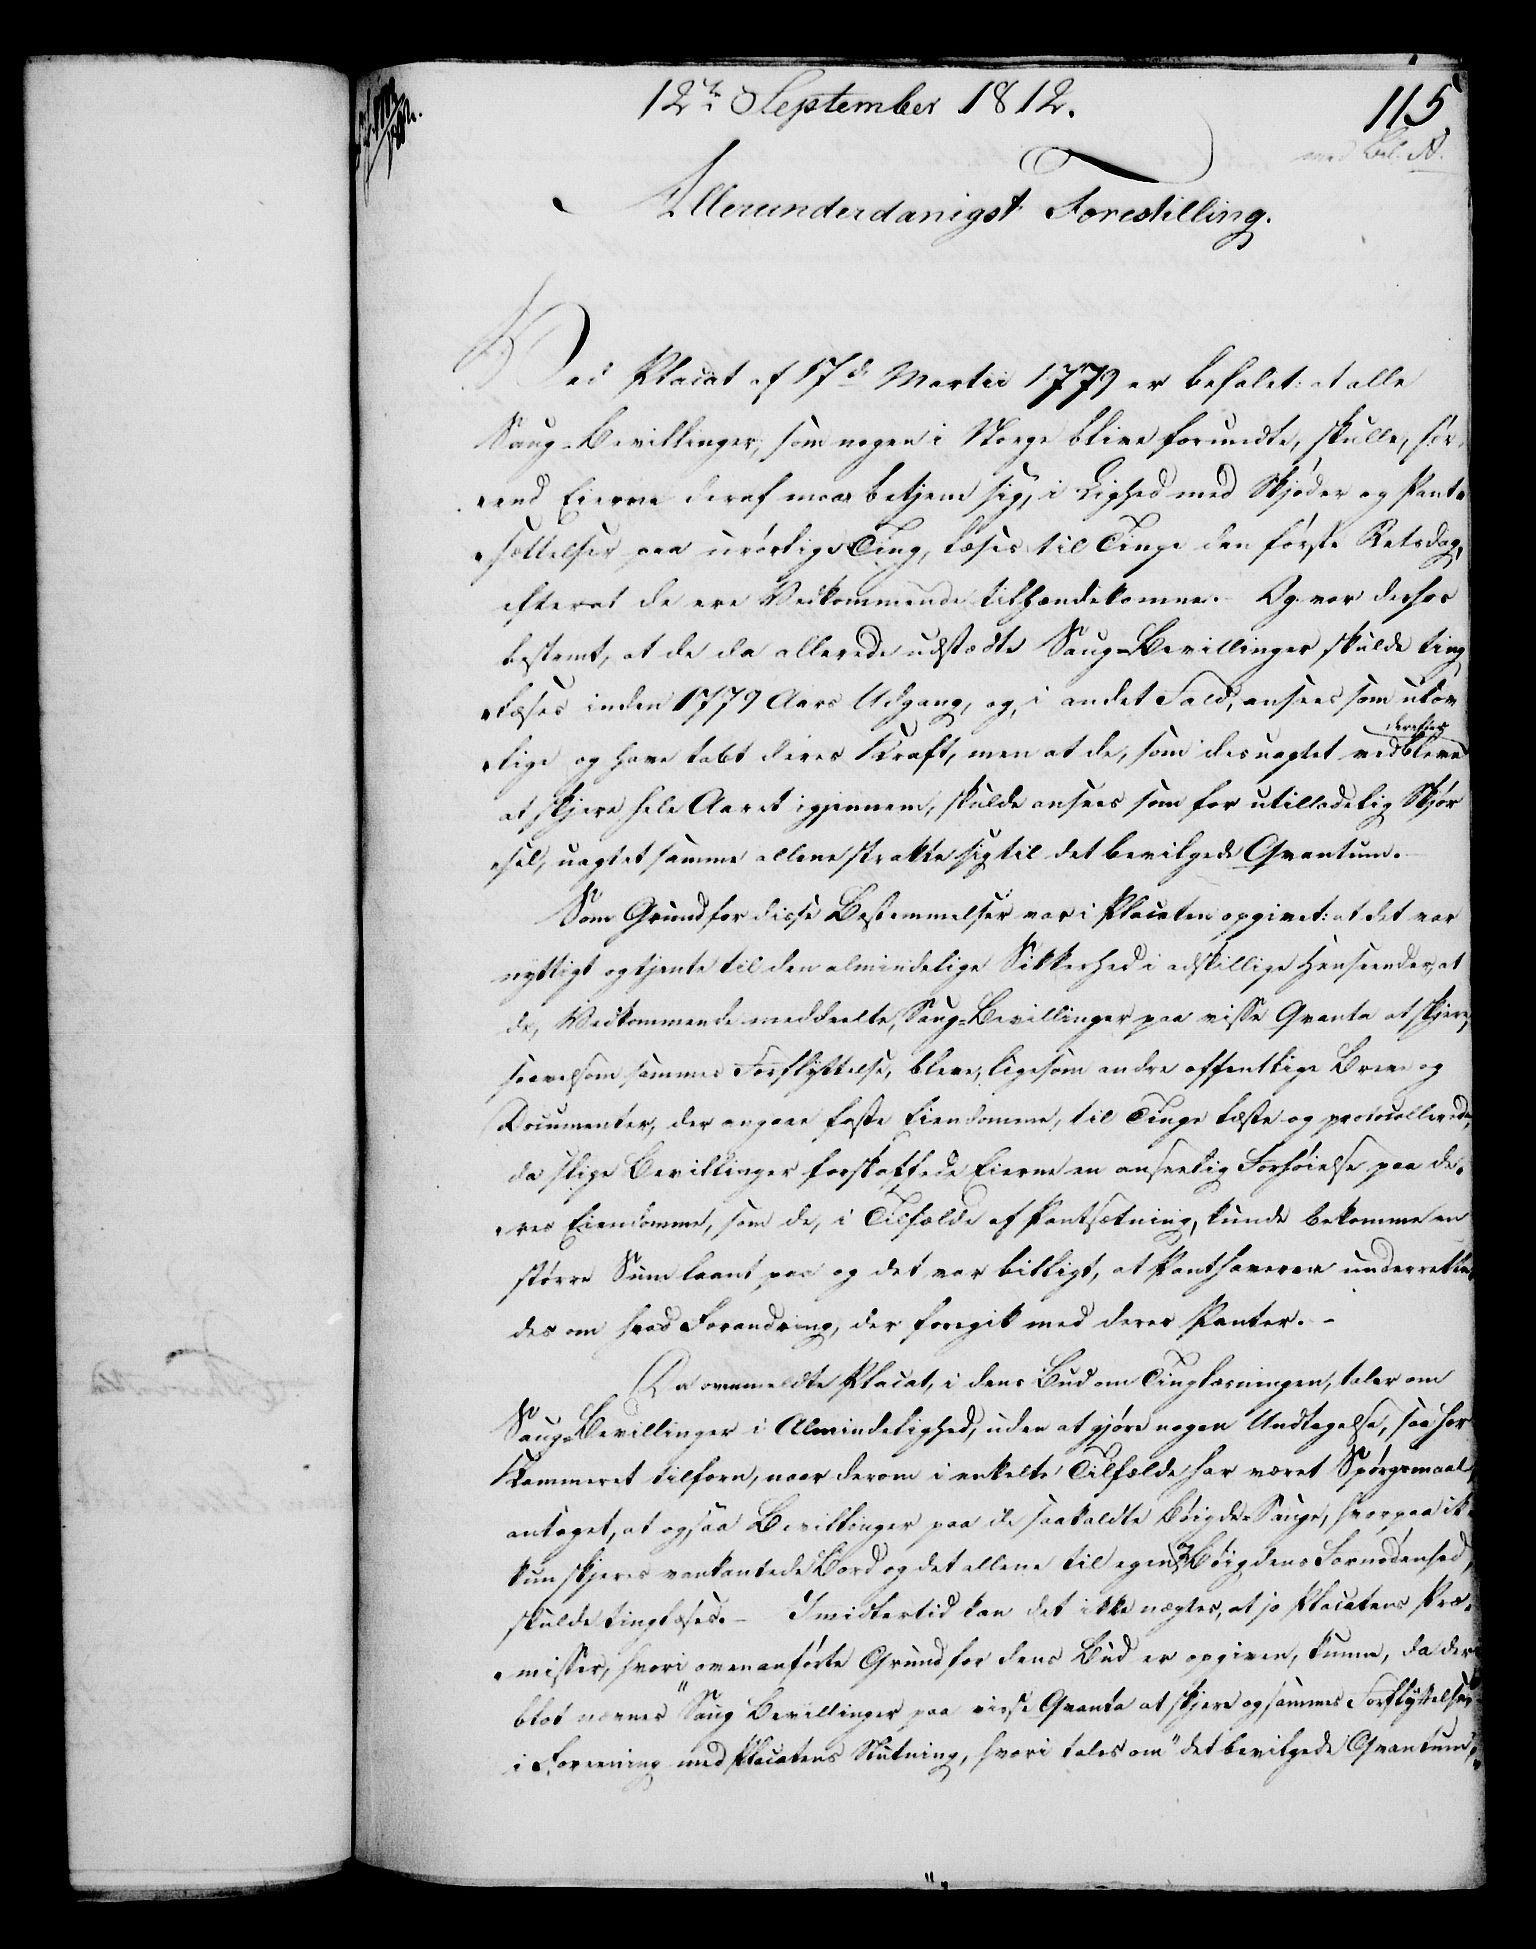 12te September 1812.
115
med Bil. A.
Allerunderdanigst Forestilling.
Ved Placat af 17de Martii 1779 er befalet: at alle
Saug-Bevillinger, som nogen i Norge blive forundte, skulle, for-
end Eierne deraf maae betjene sig, i Lighed med Skjøder og Pant-
sættelser paa urørlige Ting, læses til Tinge den første Retsdag,
efterat de ere Vedkommende tilhændekomne. Og var derhos
bestemt, at de da allerede udstædte Saug-Bevillinger skulde ting-
læses inden 1779 Aars Udgang, og, i andet Fald, ansees som ulov-
derefter
lige og have tabt deres Kraft, men at de, som desuagtet vedbleve
at skjere hele Aaret igjennem, skulde ansees som for utilladelig Skjør-
sel, uagtet samme allene strakte sig til det bevilgede Qvantum.
Som Grund for disse Bestemmelser var i Placaten opgivet: at det var
nyttigt og tjente til den almindelige Sikkerhed i adskillige Henseender, at
de, Vedkommende meddeelte, Saug-Bevillinger paa visse Qvanta at skjere,
saavelsom sammes Forflyttelse, bleve, ligesom andre offentlige Breve og
Documenter, der angaae faste Eiendomme, til Tinge læste og protocollerede,
da slige Bevillinger forskaffede Eierne en anseelig Forhøielse paa de-
res Eiendomme, som de, i Tilfælde af Pantsætning, kunde bekomme en
større Sum laant paa og det var billigt, at Panthaverne underrette-
des om hvad Forandring, der foregik med deres Panter. -
Da ovenmeldte Placat, i dens Bud om Tinglæsningen, taler om
Saug-Bevillinger i Almindelighed, uden at gjøre nogen Undtagelse, saa har
Kammeret tilforn, naar derom i enkelte Tilfælde har været Spørgsmaal,
antaget, at ogsaa Bevillinger paa de saakaldte Bøigde-Sauge, hvorpaa ik-
kun skjeres vankantede Bord og det allene til egen Bøigdens Fornødenhed,
skulde tinglæses. - Imidlertid kan det ikke nægtes, at jo Placatens Præ-
misser, hvori ovenanførte Grund for dens Bud er opgiven, kunne, da der
blot nævnes "Saug Bevillinger paa visse Qvanta at skjere og sammes Forflyttelse"
i Forening med Placatens Slutning, hvori tales om "det bevilgede Qvantum",